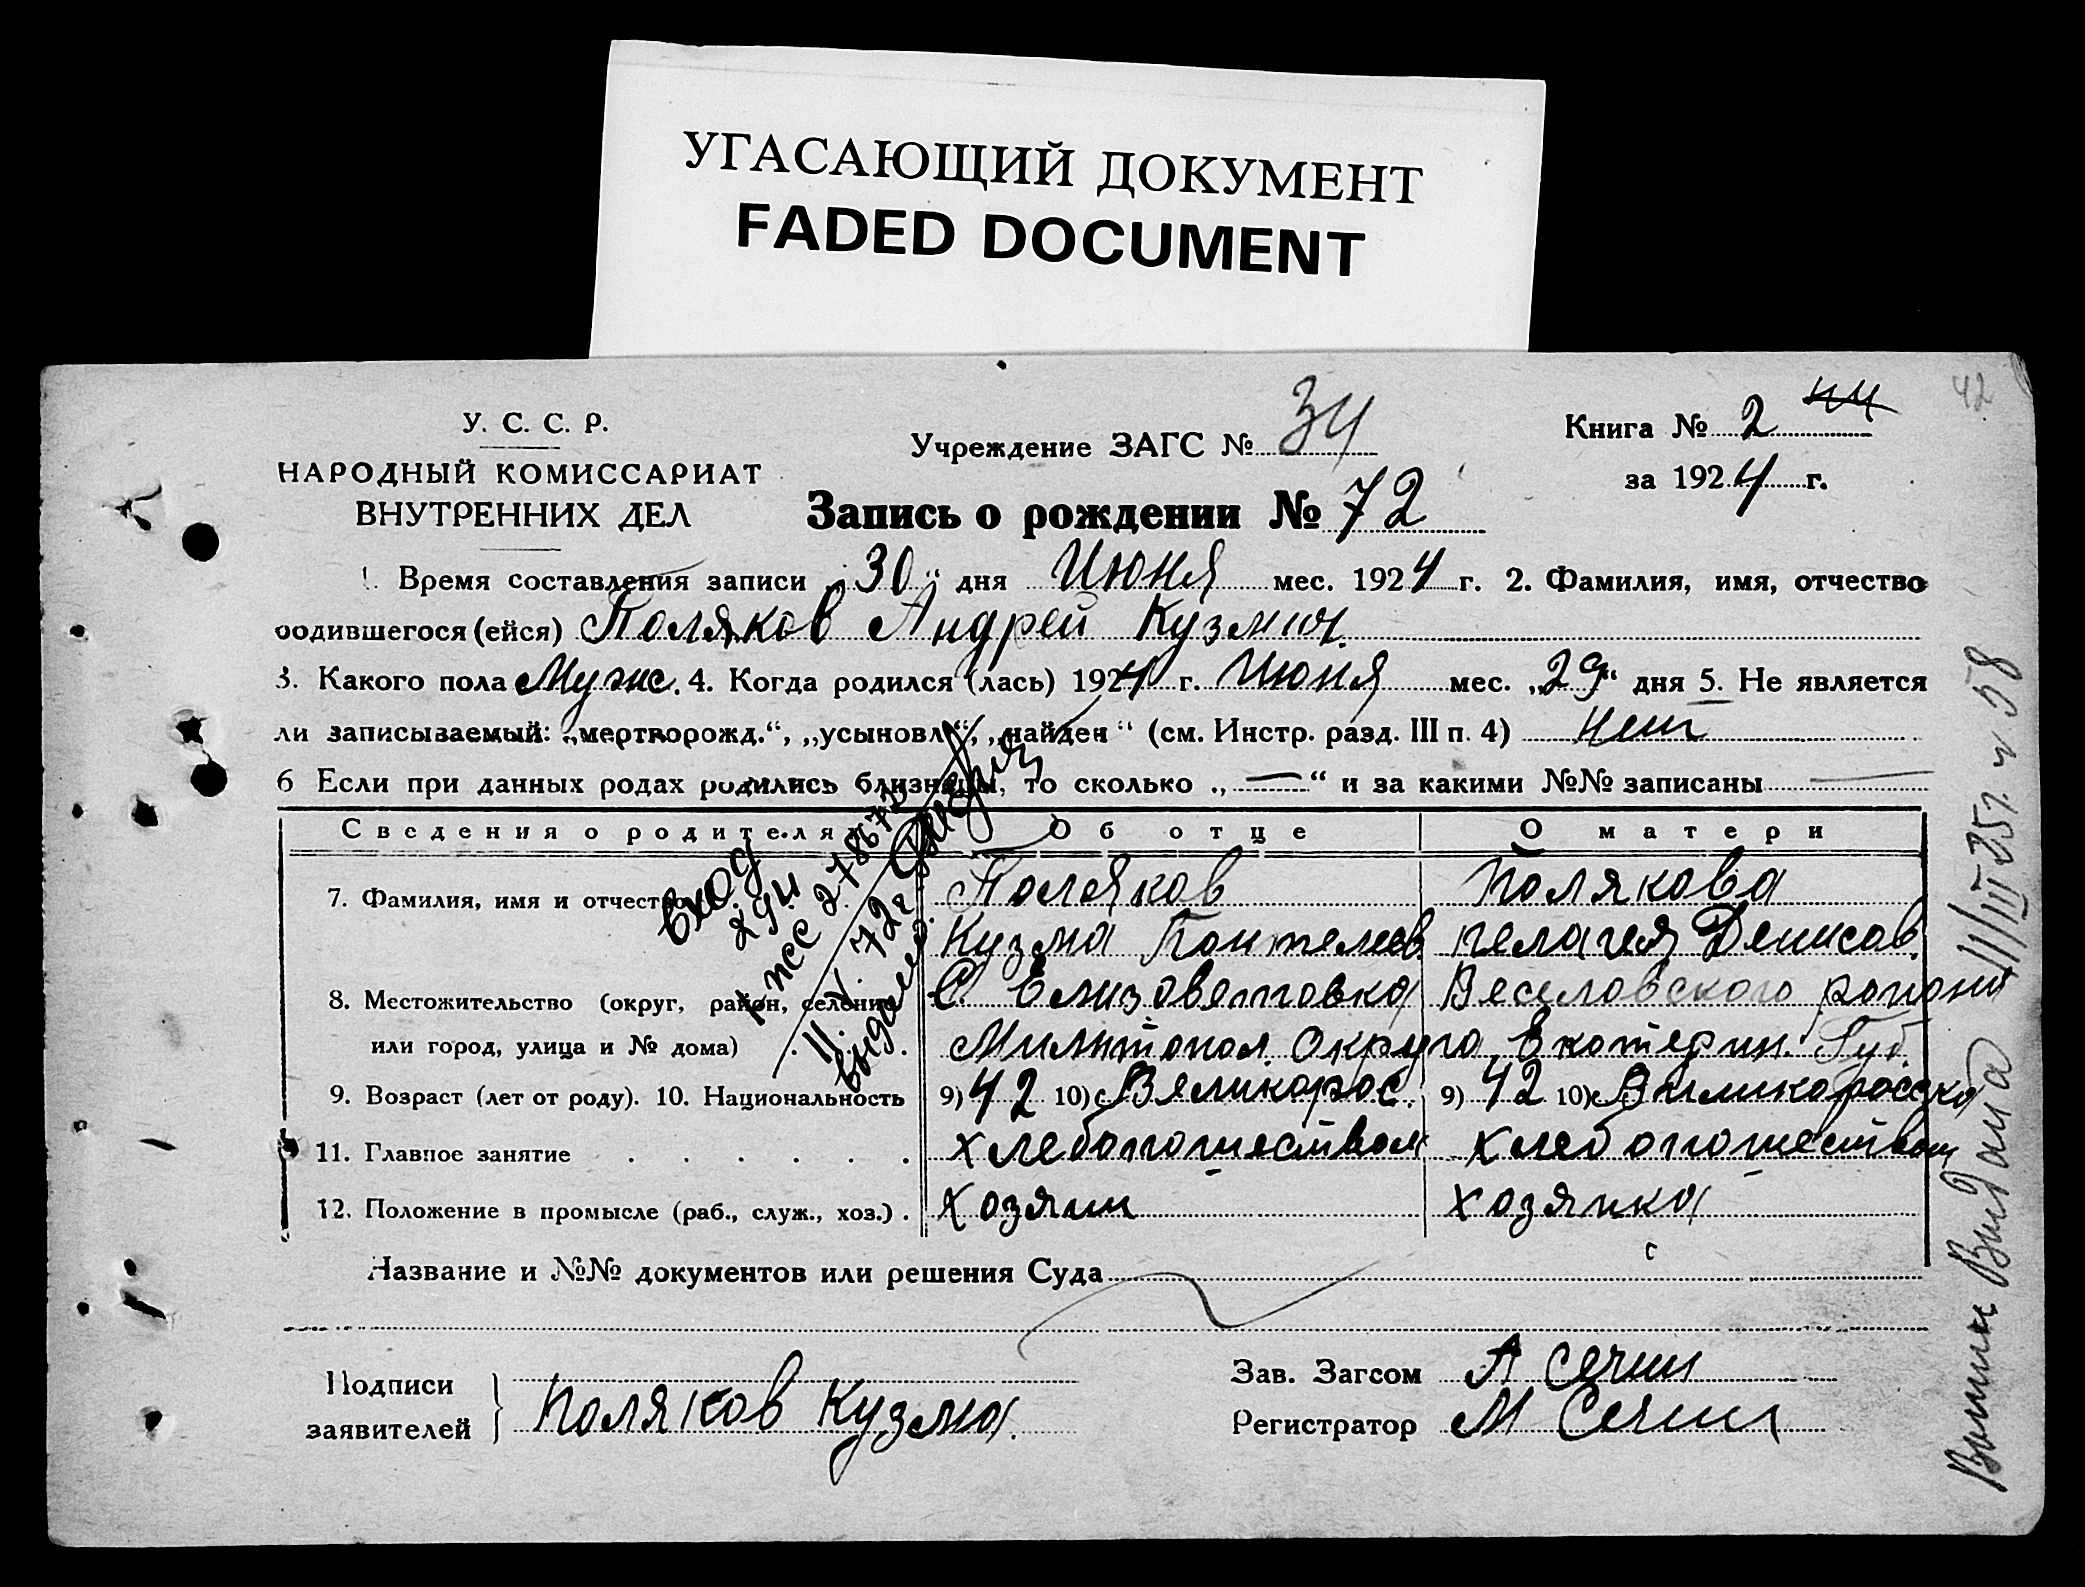 УГАСАЮЩИЙ ДОКУМЕНТ
FADED DOCUMENT
42
У. С. С. Р.
НАРОДНЫЙ КОМИССАРИАТ
ВНУТРЕННИХ ДЕЛ
Учреждение ЗАГС № 34
Книга № 2
за 1924 г.
Запись о рождении № 72
1. Время составления записи „30“ дня Июня мес. 1924 г. 2. Фамилия, имя, отчество
родившегося (ейся) Поляков Андрей Кузмич.
3. Какого пола Мужс. 4. Когда родился (лась) 1924 г. Июня мес. „29“ дня 5. Не является
ли записываемый: „мертворожд.“, „усыновл“, „найден“ (см. Инстр. разд. III п. 4) Нет
6 Если при данных родах родились близнецы, то сколько „—“ и за какими №№ записаны —
Сведения о родителях Об отце О матери
7. Фамилия, имя и отчество Поляков Полякова
Кузма Пантелеев. Пелагея Денисов.
8. Местожительство (округ, район, селение С. Елизоветовка Веселовского района
или город, улица и № дома) Милитопол. Округа Екатерин. Губ
9. Возраст (лет от роду). 10. Национальность 9) 42 10) Вяликорос. 9) 42 10) Виликоросска
11. Главное занятие хлебопошеством хлебопошеством
12. Положение в промысле (раб., служ., хоз.) . Хозяин Хозяйка
Название и №№ документов или решения Суда
Подписи
заявителей Поляков Кузма.
Зав. Загсом А Сечин
Регистратор М Сечин
вход
27867
11. V. 72г
выдано.
Выпис Видана 11/III 35г.